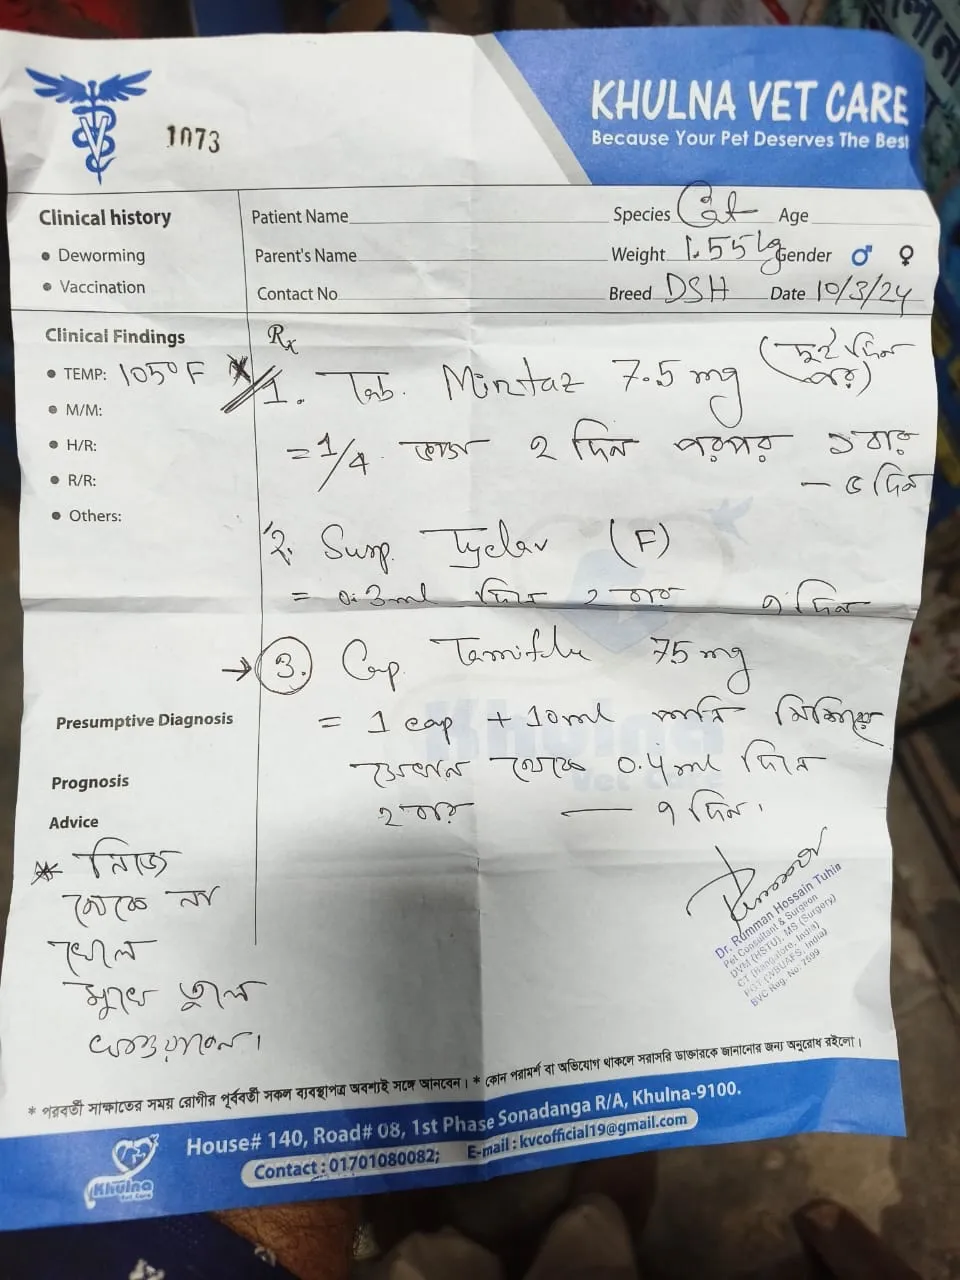 KHULNA VET CARE
Because Your Pet Deserves The Best
1073
Clinical history
• Deworming
• Vaccination
Patient Name
Parent's Name
Contact No
Species Cat Age
Weight 1.55kg Gender ♂ ♀
Breed DSH Date 10/3/24
Clinical Findings
• TEMP: 105°F
• M/M:
• H/R:
• R/R:
• Others:
Rx
1. Tab. Mirtaz 7.5 mg (দুই দিন
পর)
= 1/4 ২ দিন পরপর ১ বার
— ৫ দিন
2. Susp. Tyclav (F)
= 0.3ml দিনে ২ বার ৭ দিন
→ 3. Cap Tamiflu 75 mg
= 1 cap + 10ml পানি মিশিয়ে
সেখান থেকে 0.4ml দিনে
২ বার — ৭ দিন।
Presumptive Diagnosis
Prognosis
Advice
* নিজে
থেকে না
খেলে
মুখে তুলে
খাওয়াবেন।
Dr. Rumman Hossain Tuhin
Pet Consultant & Surgeon
DVM (HSTU), MS (Surgery)
CT (Bangalore, India)
PGT (WBUAFS, India)
BVC Reg. No: 7599
* পরবর্তী সাক্ষাতের সময় রোগীর পূর্ববর্তী সকল ব্যবস্থাপত্র অবশ্যই সঙ্গে আনবেন। * কোন পরামর্শ বা অভিযোগ থাকলে সরাসরি ডাক্তারকে জানানোর জন্য অনুরোধ রইলো।
House# 140, Road# 08, 1st Phase Sonadanga R/A, Khulna-9100.
Contact : 01701080082; E-mail : kvcofficial19@gmail.com
Khulna
Vet Care